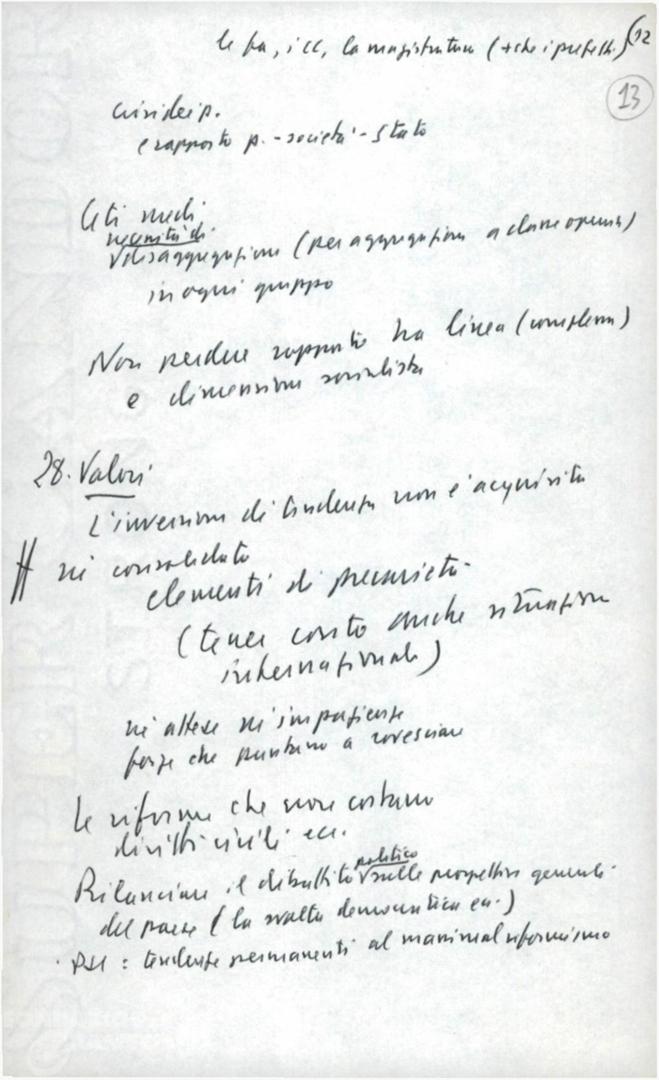 le ps, i CC, la magistratura (+ che i prefetti) (12
13
crisi dei p.
e rapporto p. - società - Stato
Ceti medi
necessità di
disaggregazione (per aggregazione a classe operaia)
in ogni gruppo
Non perdere rapporto tra linea (complessa)
e dimensione socialista
28. Valori
L'inversione di tendenza non è acquisita
né consolidata
elementi di precarietà
(tener conto anche situazione
internazionale)
né attese né impazienze
forze che puntano a rovesciare
Le riforme che non costano
diritti civili ecc.
politico
Rilanciare il dibattito sulle prospettive generali
del paese (la svolta democratica ecc.)
PSI: tendenze permanenti al maximalriformismo